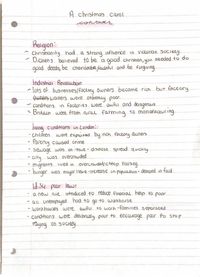 A christmas carol
context
Religion:
- Christianity had a strong influence in victorian society.
- Dickens believed to be a good christian, you needed to do
good deeds, be charitable, faithful and be forgiving
Industrial Revolution
- lots of businesses/factory owners became rich but factory
workers were extremely poor.
- conditions in factories were awful and dangerous
- Britain went from rural farming to manufacturing.
living conditions in London:
- children were exploited by rich factory owners
- Poverty caused crime
- sewage was on the streets - disease spread quickly
- city was overcrowded
- migrants were
- hunger was major - increase in population - demand of food
1834 poor law
- a new law introduced to reduce financial help to poor
- all unemployed had to go to workhouse
- workhouses were awful to work - families separated
- conditions were deliberately poor to encourage poor to stop
relying on society